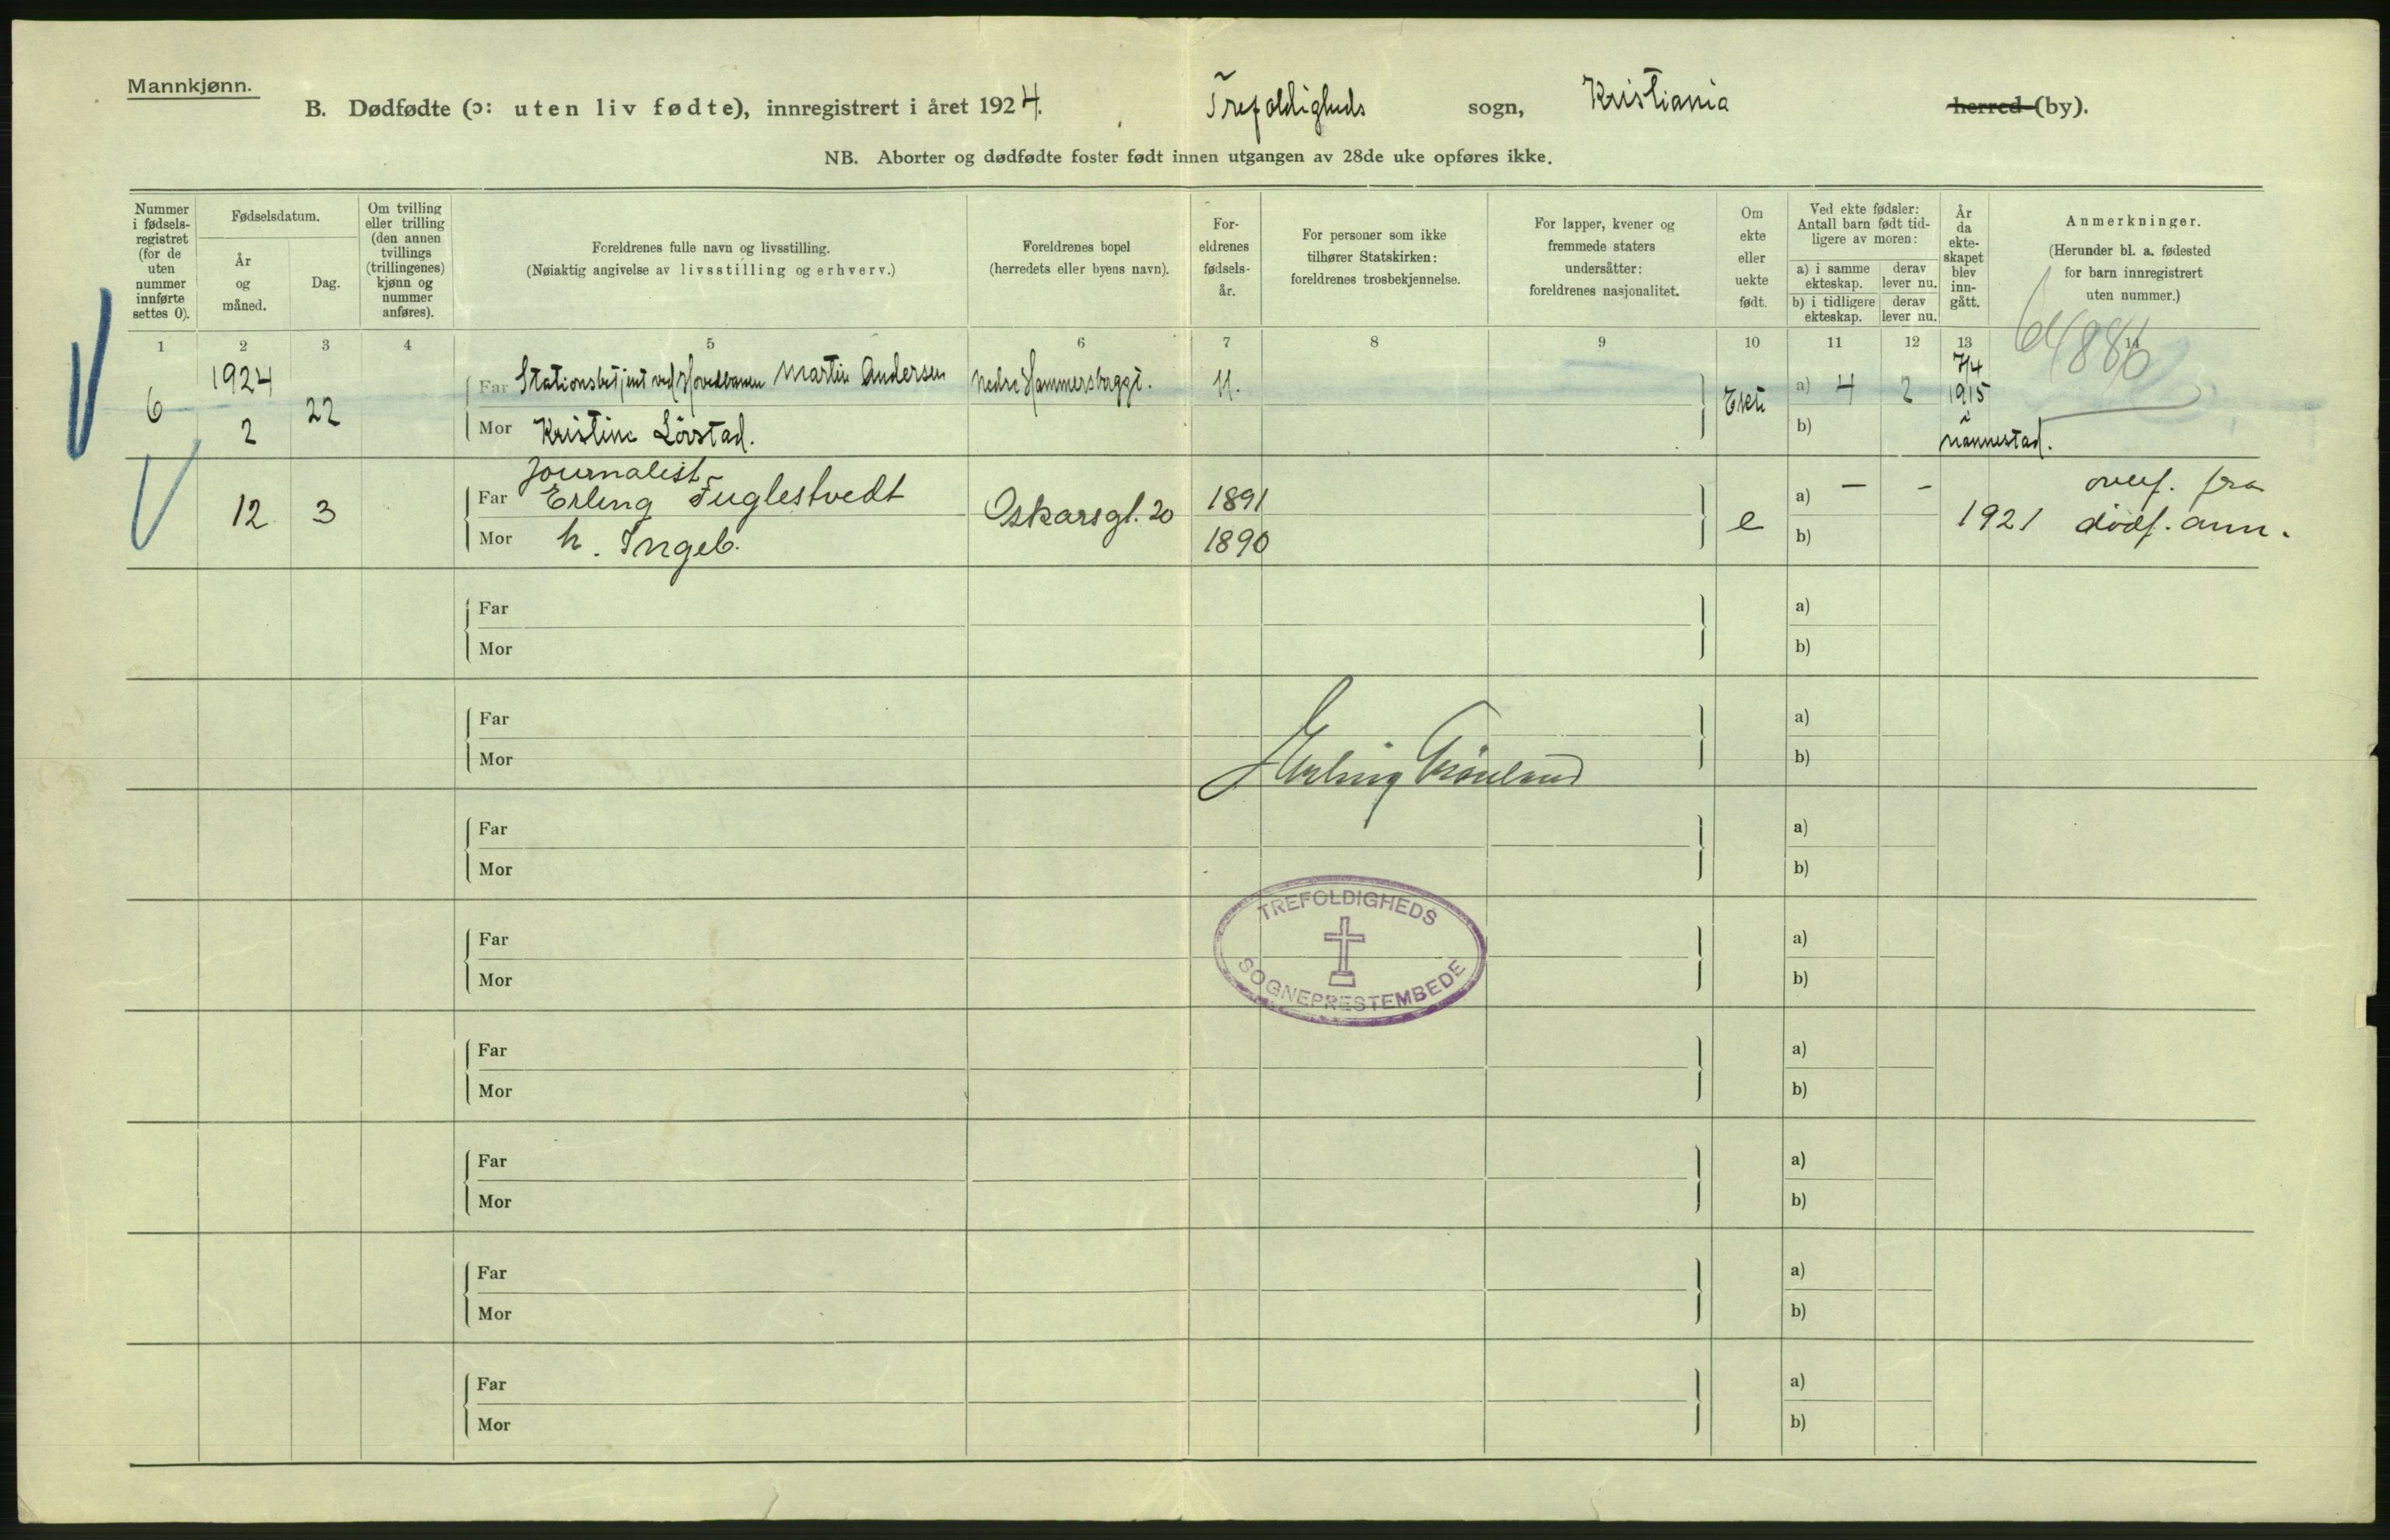 Mannkjønn.
B. Dødfødte (ɔ: uten liv fødte), innregistrert i året 1924. Trefoldigheds sogn, Kristiania herred (by).
NB. Aborter og dødfødte foster født innen utgangen av 28de uke opføres ikke.
Nummer i fødsels-registret (for de uten nummer innførte settes 0).
Fødselsdatum.
År og måned.
Dag.
Om tvilling eller trilling (den annen tvillings (trillingenes) kjønn og nummer anføres).
Foreldrenes fulle navn og livsstilling.
(Nøiaktig angivelse av livsstilling og erhverv.)
Foreldrenes bopel
(herredets eller byens navn).
For-eldrenes fødsels-år.
For personer som ikke tilhører Statskirken: foreldrenes trosbekjennelse.
For lapper, kvener og fremmede staters undersåtter: foreldrenes nasjonalitet.
Om ekte eller uekte født.
Ved ekte fødsler: Antall barn født tid-ligere av moren:
a) i samme ekteskap. derav lever nu.
b) i tidligere ekteskap. derav lever nu.
År da ekte-skapet blev inn-gått.
Anmerkninger.
(Herunder bl. a. fødested for barn innregistrert uten nummer.)
1 2 3 4 5 6 7 8 9 10 11 12 13 14
6 1924 2 22
Far Stationsbetjent ved Hovedbanen Martin Andersen
Mor Kristine Lörstad.
Nedre Hammersborggt. 11. Ekte a) 4 2 b) 7/4 1915 i Nannestad.
12 3
Journalist
Far Erling Fuglestvedt Oskarsgt. 20 1891
Mor h. Ingeb. 1890
e a) – - b) 1921 overf. fra dödf. anm.
Far a)
Mor b)
Far a)
Mor b)
Erling Grönland
Far a)
Mor b)
Far a)
Mor b)
TREFOLDIGHEDS
SOGNEPRESTEMBEDE
Far a)
Mor b)
Far a)
Mor b)
Far a)
Mor b)
Far a)
Mor b)